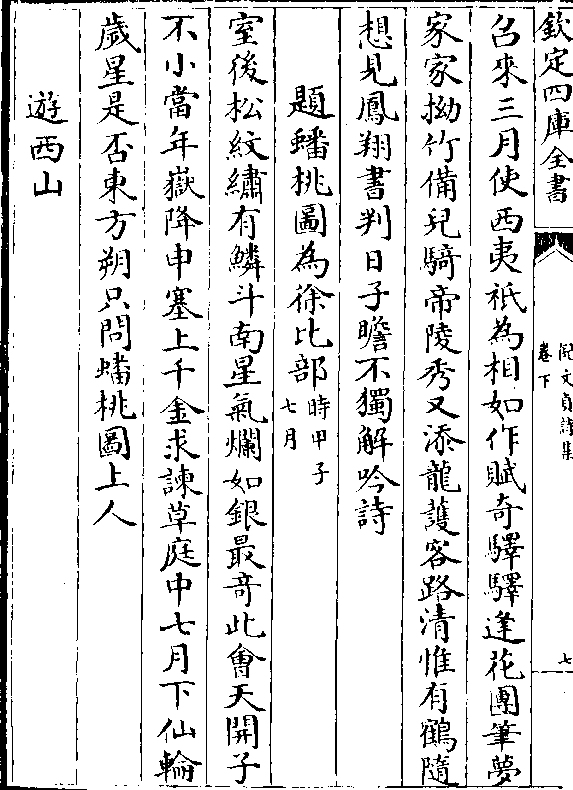 欽定四庫全書
倪文貞詩集
卷下
七
召來三月使西夷祗為相如作賦奇驛驛逢花團筆夢
家家拗竹備兒騎帝陵秀又添龍護客路清惟有鶴隨
想見鳳翔書判日子瞻不獨解吟詩
題蟠桃圖為徐比部時甲子七月
室後松紋繡有鱗斗南星氣爛如銀最奇此會天開子
不小當年嶽降申塞上千金求諫草庭中七月下仙輪
歲星是否東方朔只問蟠桃圖上人
遊西山